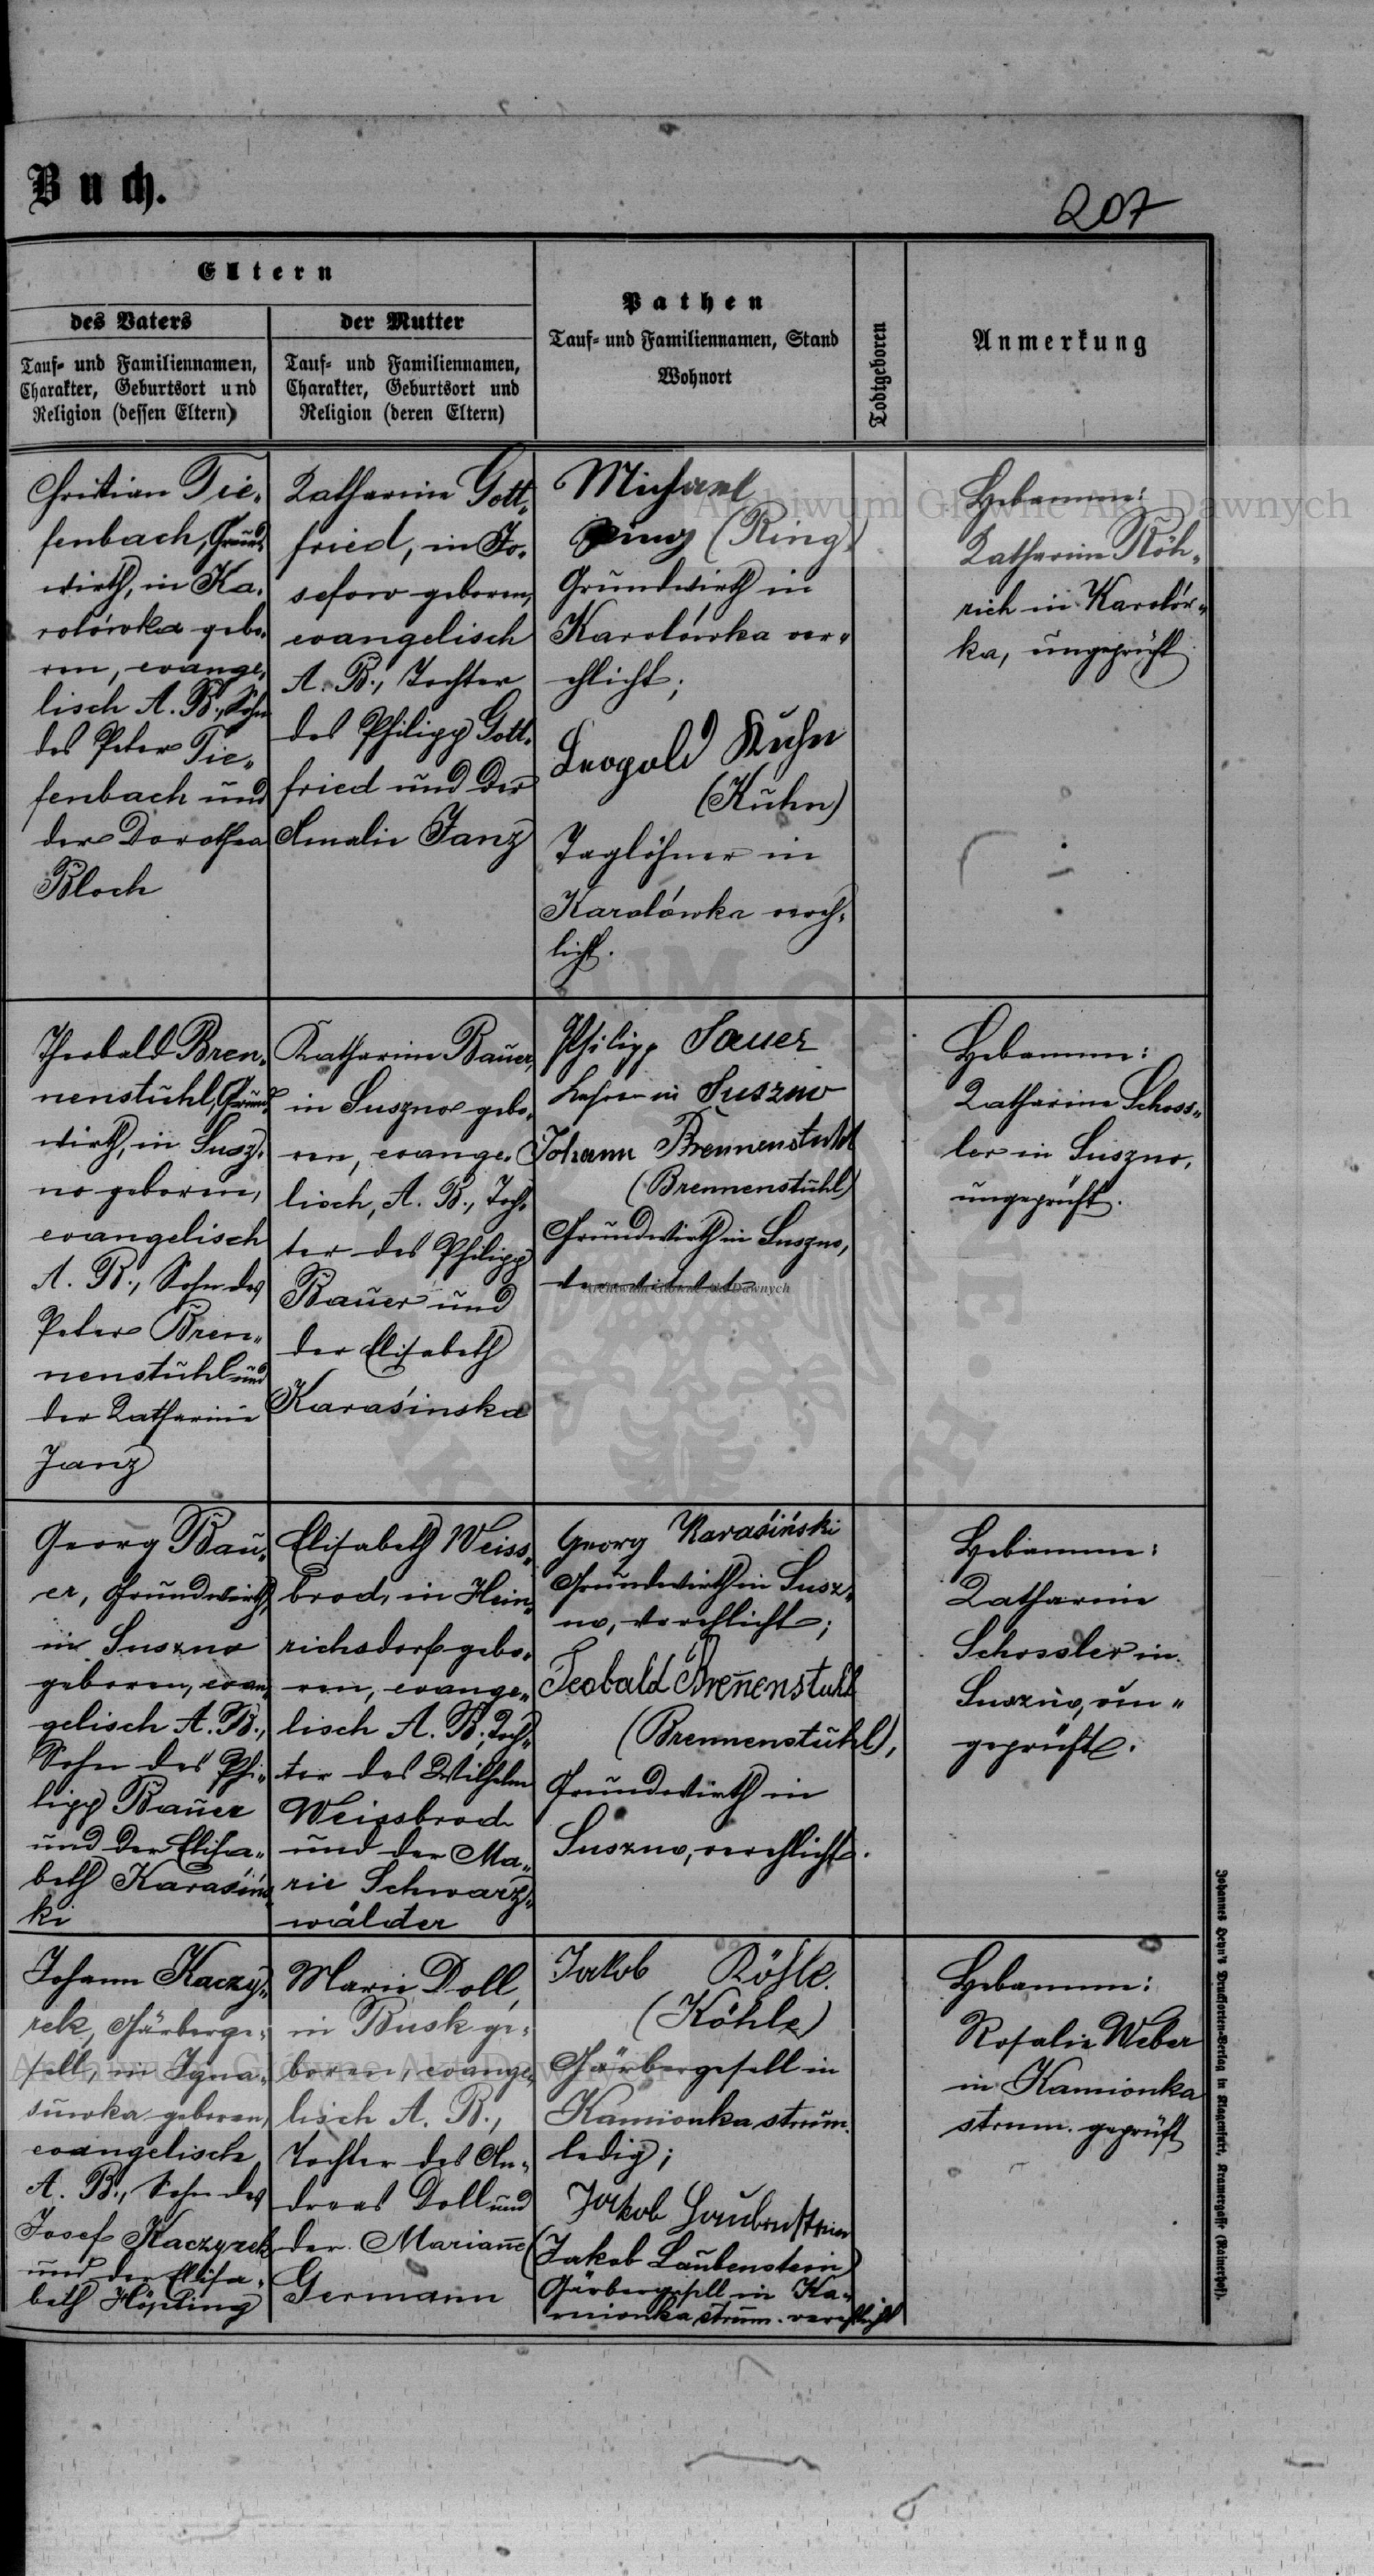 Buch.
207
Eltern
des Vaters
Tauf- und Familiennamen,
Charakter, Geburtsort und
Religion (dessen Eltern)
der Mutter
Tauf- und Familiennamen,
Charakter, Geburtsort und
Religion (deren Eltern)
Pathen
Tauf- und Familiennamen, Stand
Wohnort
Todtgeboren
Anmerkung
Christian Tie-
fenbach, Grund-
wirth, in Ka-
rolówka gebo-
ren, evange-
lisch A. B., Sohn
des Peter Tie-
fenbach und
der Dorothea
Bloch
Katharine Gott-
fried, in Jo-
sefow geboren,
evangelisch
A. B., Tochter
des Philipp Gott-
fried und der
Amalie Janz
Michael
Ring (Ring)
Grundwirth in
Karolówka ver-
ehlicht;
Leopold Kuhn
(Kuhn)
Taglöhner in
Karolówka vereh-
licht.
Hebamme:
Katharine Röh-
rich in Karolów-
ka, ungeprüft
Theobald Bren-
nenstuhl, Grund-
wirth, in Susz-
no geboren,
evangelisch
A. B., Sohn des
Peter Bren-
nenstuhl und
der Katharine
Janz
Katharine Bauer,
in Suszno gebo-
ren, evange-
lisch, A. B., Toch-
ter des Philipp
Bauer und
der Elisabeth
Karasińska
Philipp Sauer
Lehrer in Suszno
Johann Brennenstuhl
(Brennenstuhl)
Grundwirth in Suszno,
verwitwet
Hebamme:
Katharine Schoss-
ler in Suszno,
ungeprüft.
Georg Bau-
er, Grundwirth,
in Suszno
geboren, evan-
gelisch A. B.,
Sohn des Phi-
lipp Bauer
und der Elisa-
beth Karasińs-
ki
Elisabeth Weiss-
brod, in Hein-
richsdorf gebo-
ren, evange-
lisch A. B., Toch-
ter des Wilhelm
Weissbrod
und der Ma-
rie Schwarz-
wälder
Georg Karasiński
Grundwirth in Susz-
no, verehlicht;
Teobald Breñenstuhl
(Brennenstuhl),
Grundwirth in
Suszno, verehlicht.
Hebamme:
Katharine
Schossler in
Suszno, un-
geprüft.
Johann Kaczy-
rek, Gärberge-
sell, in Igna-
sówka geboren,
evangelisch
A. B., Sohn des
Josef Kaczyrek
und der Elisa-
beth Höpling
Marie Doll,
in Busk ge-
boren, evange-
lisch A. B.,
Tochter des An-
dreas Doll und
der Mariañe
Germann
Jakob Köhle.
(Köhle)
Gärbergesell in
Kamionka strum.
ledig;
Jakob Laubenstein
(Jakob Laubenstein)
Gärbergesell in Ka-
mionka strum. verehlicht
Hebamme:
Rosalie Weber
in Kamionka
strum. geprüft
Johannes Heyn's Drucksorten-Verlag in Klagenfurt, Kramergasse (Rainerhof).
Archiwum Główne Akt Dawnych
Archiwum Główne Akt Dawnych
Archiwum Główne Akt Dawnych